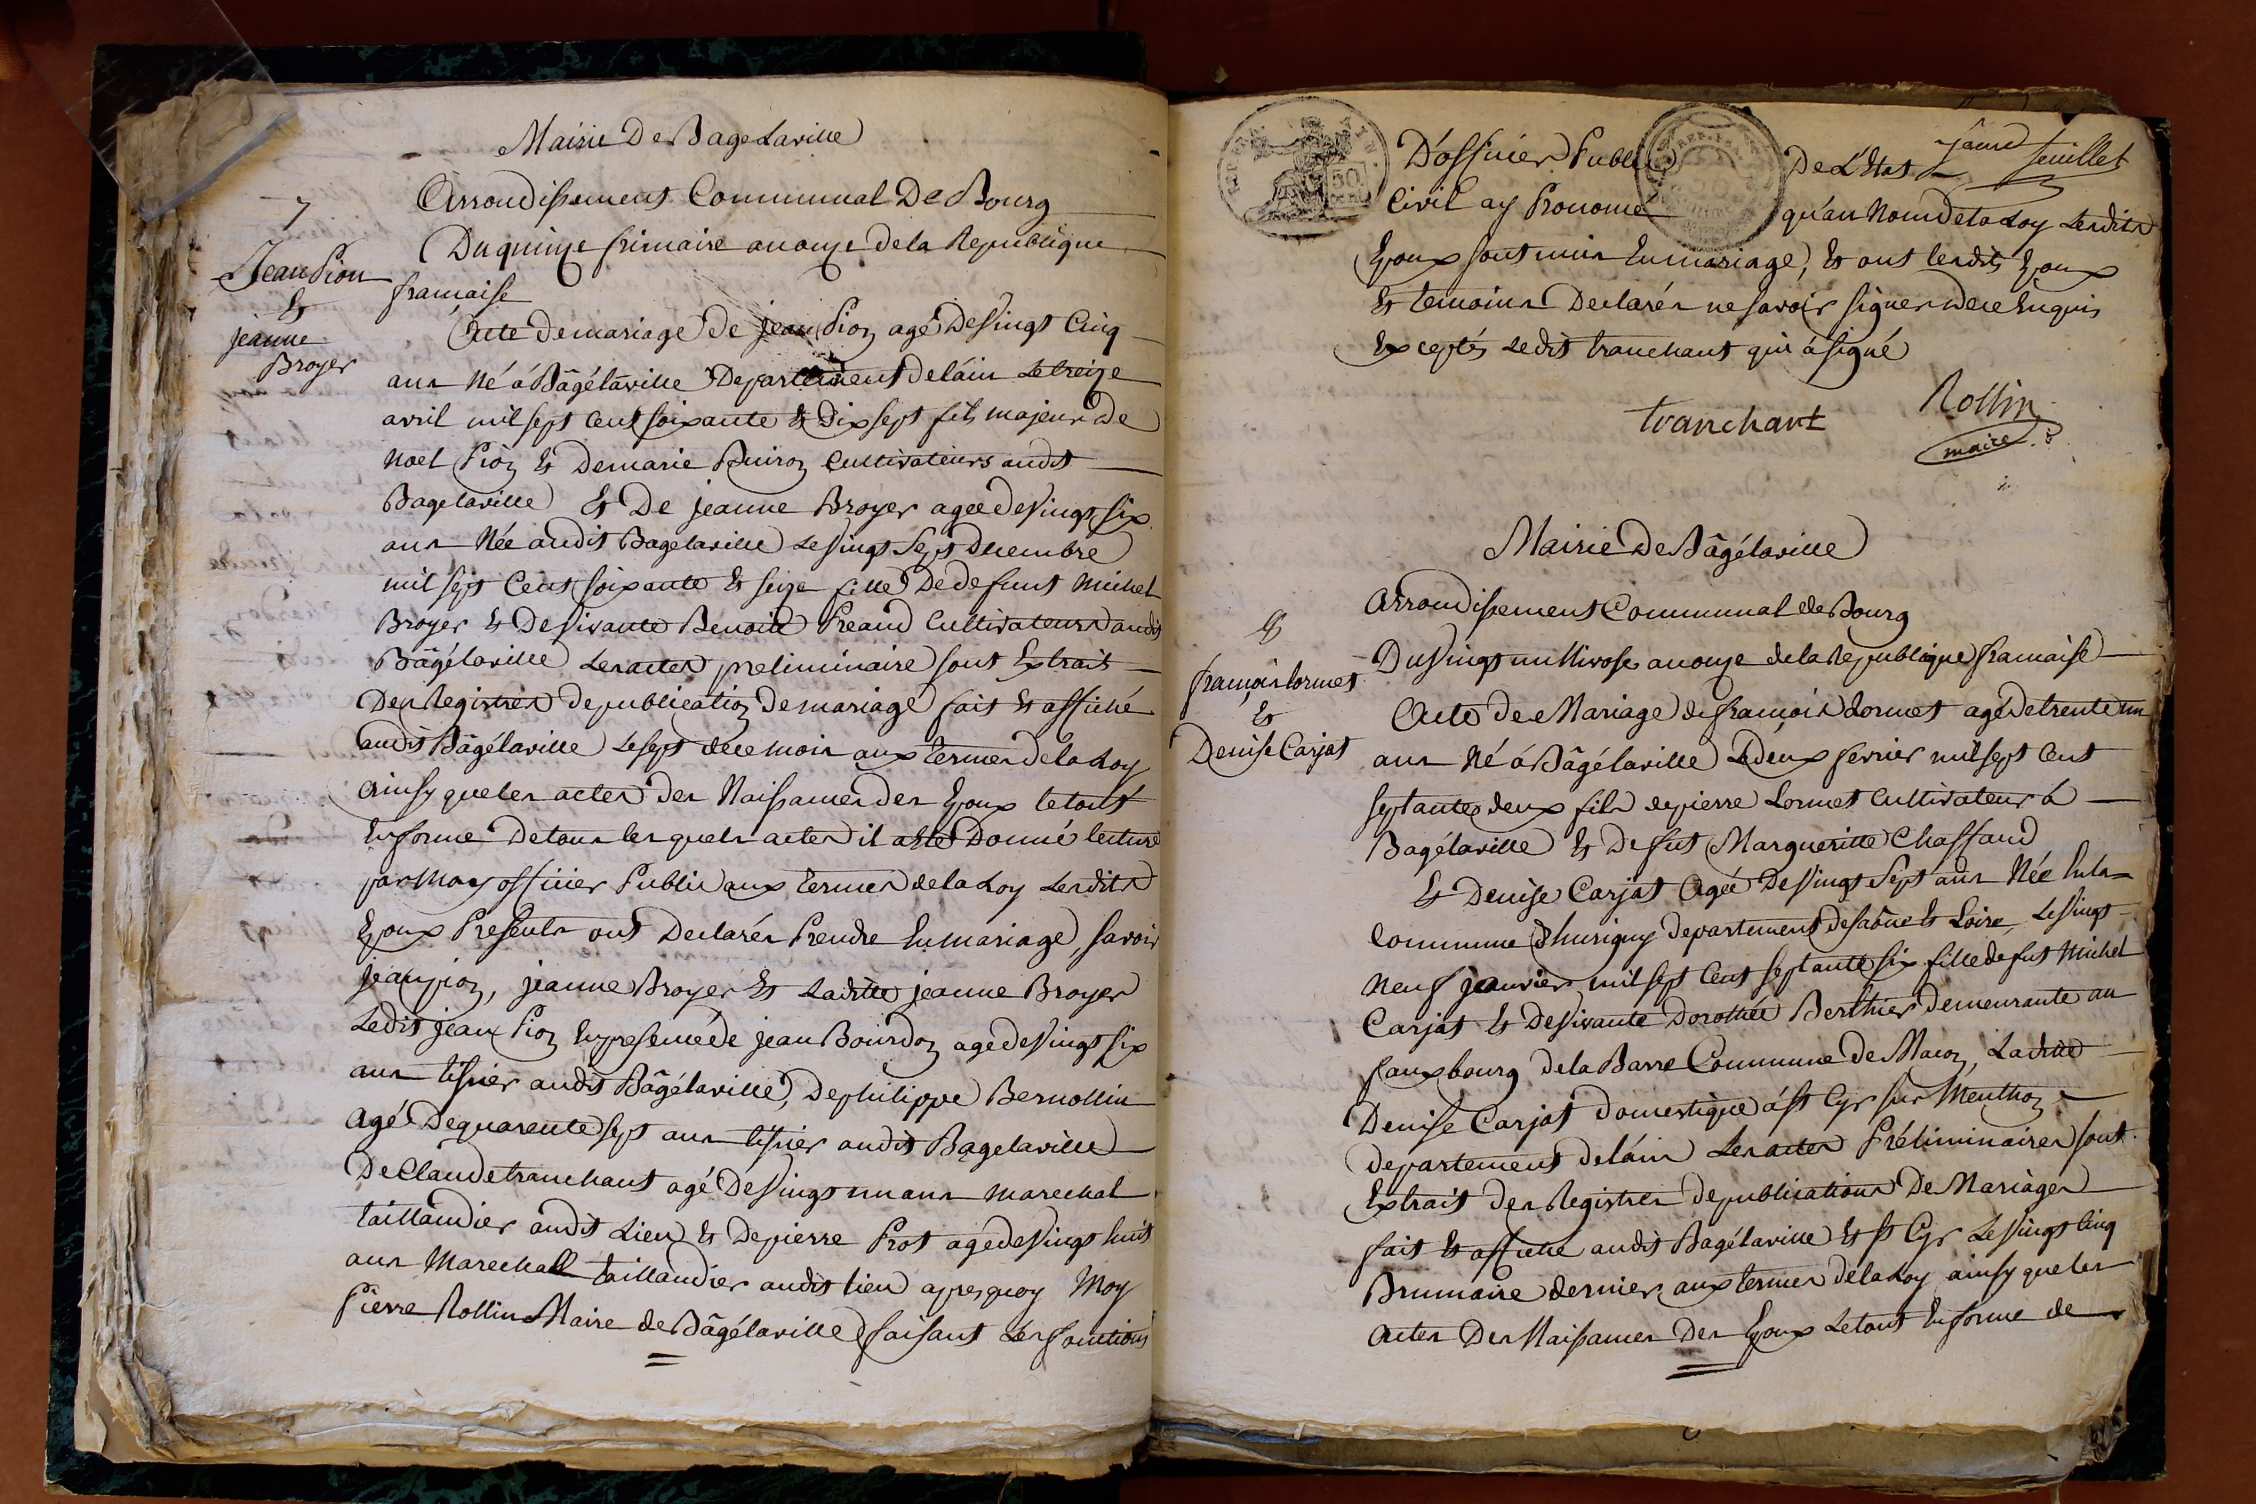 Mairie De Bagelaville
Arrondissement Communal De Bourg
7
Du quinze frimaire an onze de la Republique
francaise
Jean Pion
&
jeanne
Broyer
Acte de mariage de jean Pion agé De vingt Cinq
ans Né á Bâgélaville Departement de láin Le treize
avril mil sept Cent soixante & Dix sept fils majeur de
Noel Pion & De marie Cultivateurs audit
Bagelaville & De jeanne Broyer agée de vingt six
ans Née audit Bagelaville Le vingt Sept Decembre
mil sept Cent soixante & seize fille De defunt Michel
Broyer & De vivante Benoite Preaud Cultivateurs audit
Bâgélaville Les actes preliminaire sont Extrait
Des Registres de publication de mariage fait & affiché
audit Bâgélaville Le sept de ce mois aux termes de la Loy
Ainsy que les actes des Naissances des Epoux le tout
En forme De tous les quels actes il a été Donné lecture
par Moy officier Public aux termes de la Loy Lesdits
Epoux Presents ont Declarés Prendre En mariage, savoir
jean pion, jeanne Broyer & Laditte jeanne Broyer
Ledit jean Pion En presence de jean Bourdon agé de vingt six
ans tisier audit Bâgélaville, De philippe Bernollin
Agé De quarente sept ans tisier audit Bagelaville
De Claude tranchant agé De vingt un ans marechal
taillandier audit Lieu & De pierre Prost agé de vingt huit
ans Marechall taillandier audit lieu apres quoy Moy
Pierre Rollin Maire de Bâgélaville faisant Les fonctions
D'officier Public De L'Etat
feuillet
Civil ay Prononcé qu'au Nom de la Loy Lesdits
Epoux sont unis En mariage, & ont lesdits Epoux
& temoins Declarés ne savoir signer de ce Enquis
Exceptés Ledit tranchant qui á signé
tranchant
Rollin
maire
Mairie De Bâgélaville
Arrondissement Communal de Bourg
8
francois Lormet
&
Denise Carjat
Du vingt nivose an onze de la Republique francaise
Acte de Mariage de francois Lormet agé de trente un
ans Né á Bâgélaville Le deux fevrier mil sept Cent
septante deux fils de pierre Lormet Cultivateur á
Bagélaville & De fut Margueritte Chaffaud
& Denise Carjat Agée De vingt Sept ans Née En la
Commune d'hurigny departement de saône & Loire, Le vingt
Neuf janvier mil sept Cent septante six fille de fut Michel
Carjat & De vivante Dorothée Berthier demeurante au
fauxbourg de la Barre Commune de Macon, Laditte
Denise Carjat domestique á st Cyr sur Menthon
departement de láin Les actes Préliminaires sont
Extrait des Registres de publications De Mariages
fait & affiché audit Bagélaville & st Cyr Le vingt Cinq
Brumaire dernier aux termes de la Loy ainsy que les
Actes Des Naissances Des Epoux Le tout En forme de